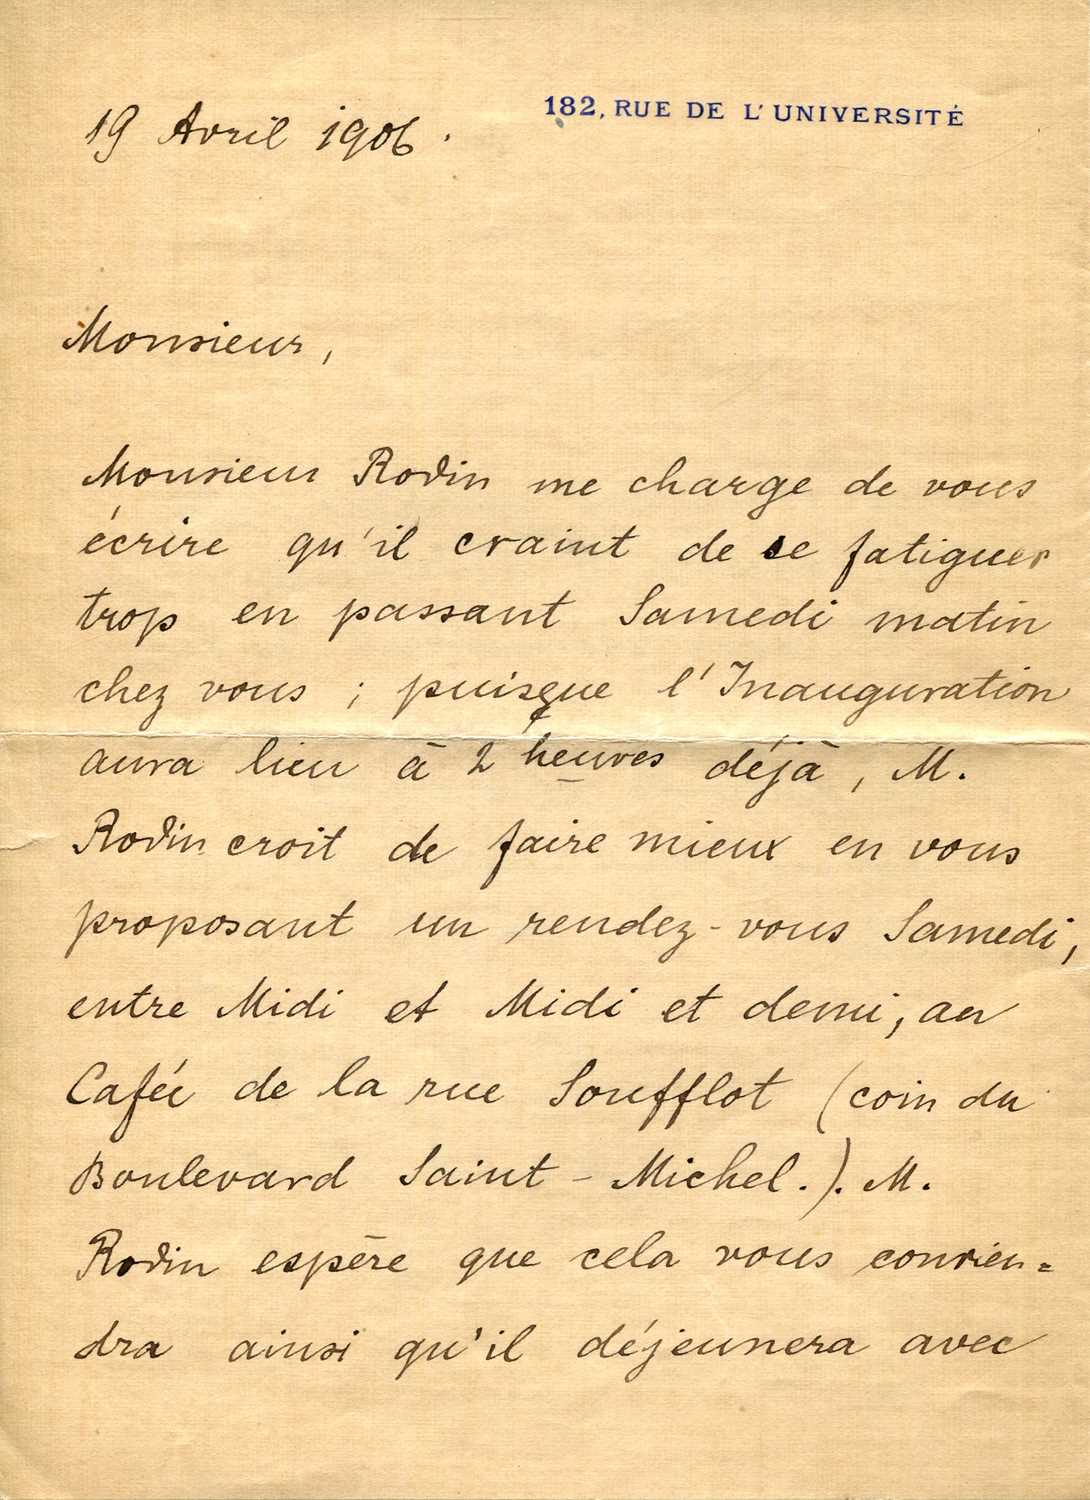 19 Avril 1906.
182, RUE DE L'UNIVERSITÉ
Monsieur,
Monsieur Rodin me charge de vous
écrire qu'il craint de se fatiguer
trop en passant Samedi matin
chez vous ; puisque l'Inauguration
aura lieu à 2 heures déjà, M.
Rodin croit de faire mieux en vous
proposant un rendez-vous Samedi,
entre Midi et Midi et demi, au
Cafée de la rue Soufflot (coin du
Boulevard Saint-Michel.). M.
Rodin espère que cela vous convien=
dra ainsi qu'il déjeunera avec